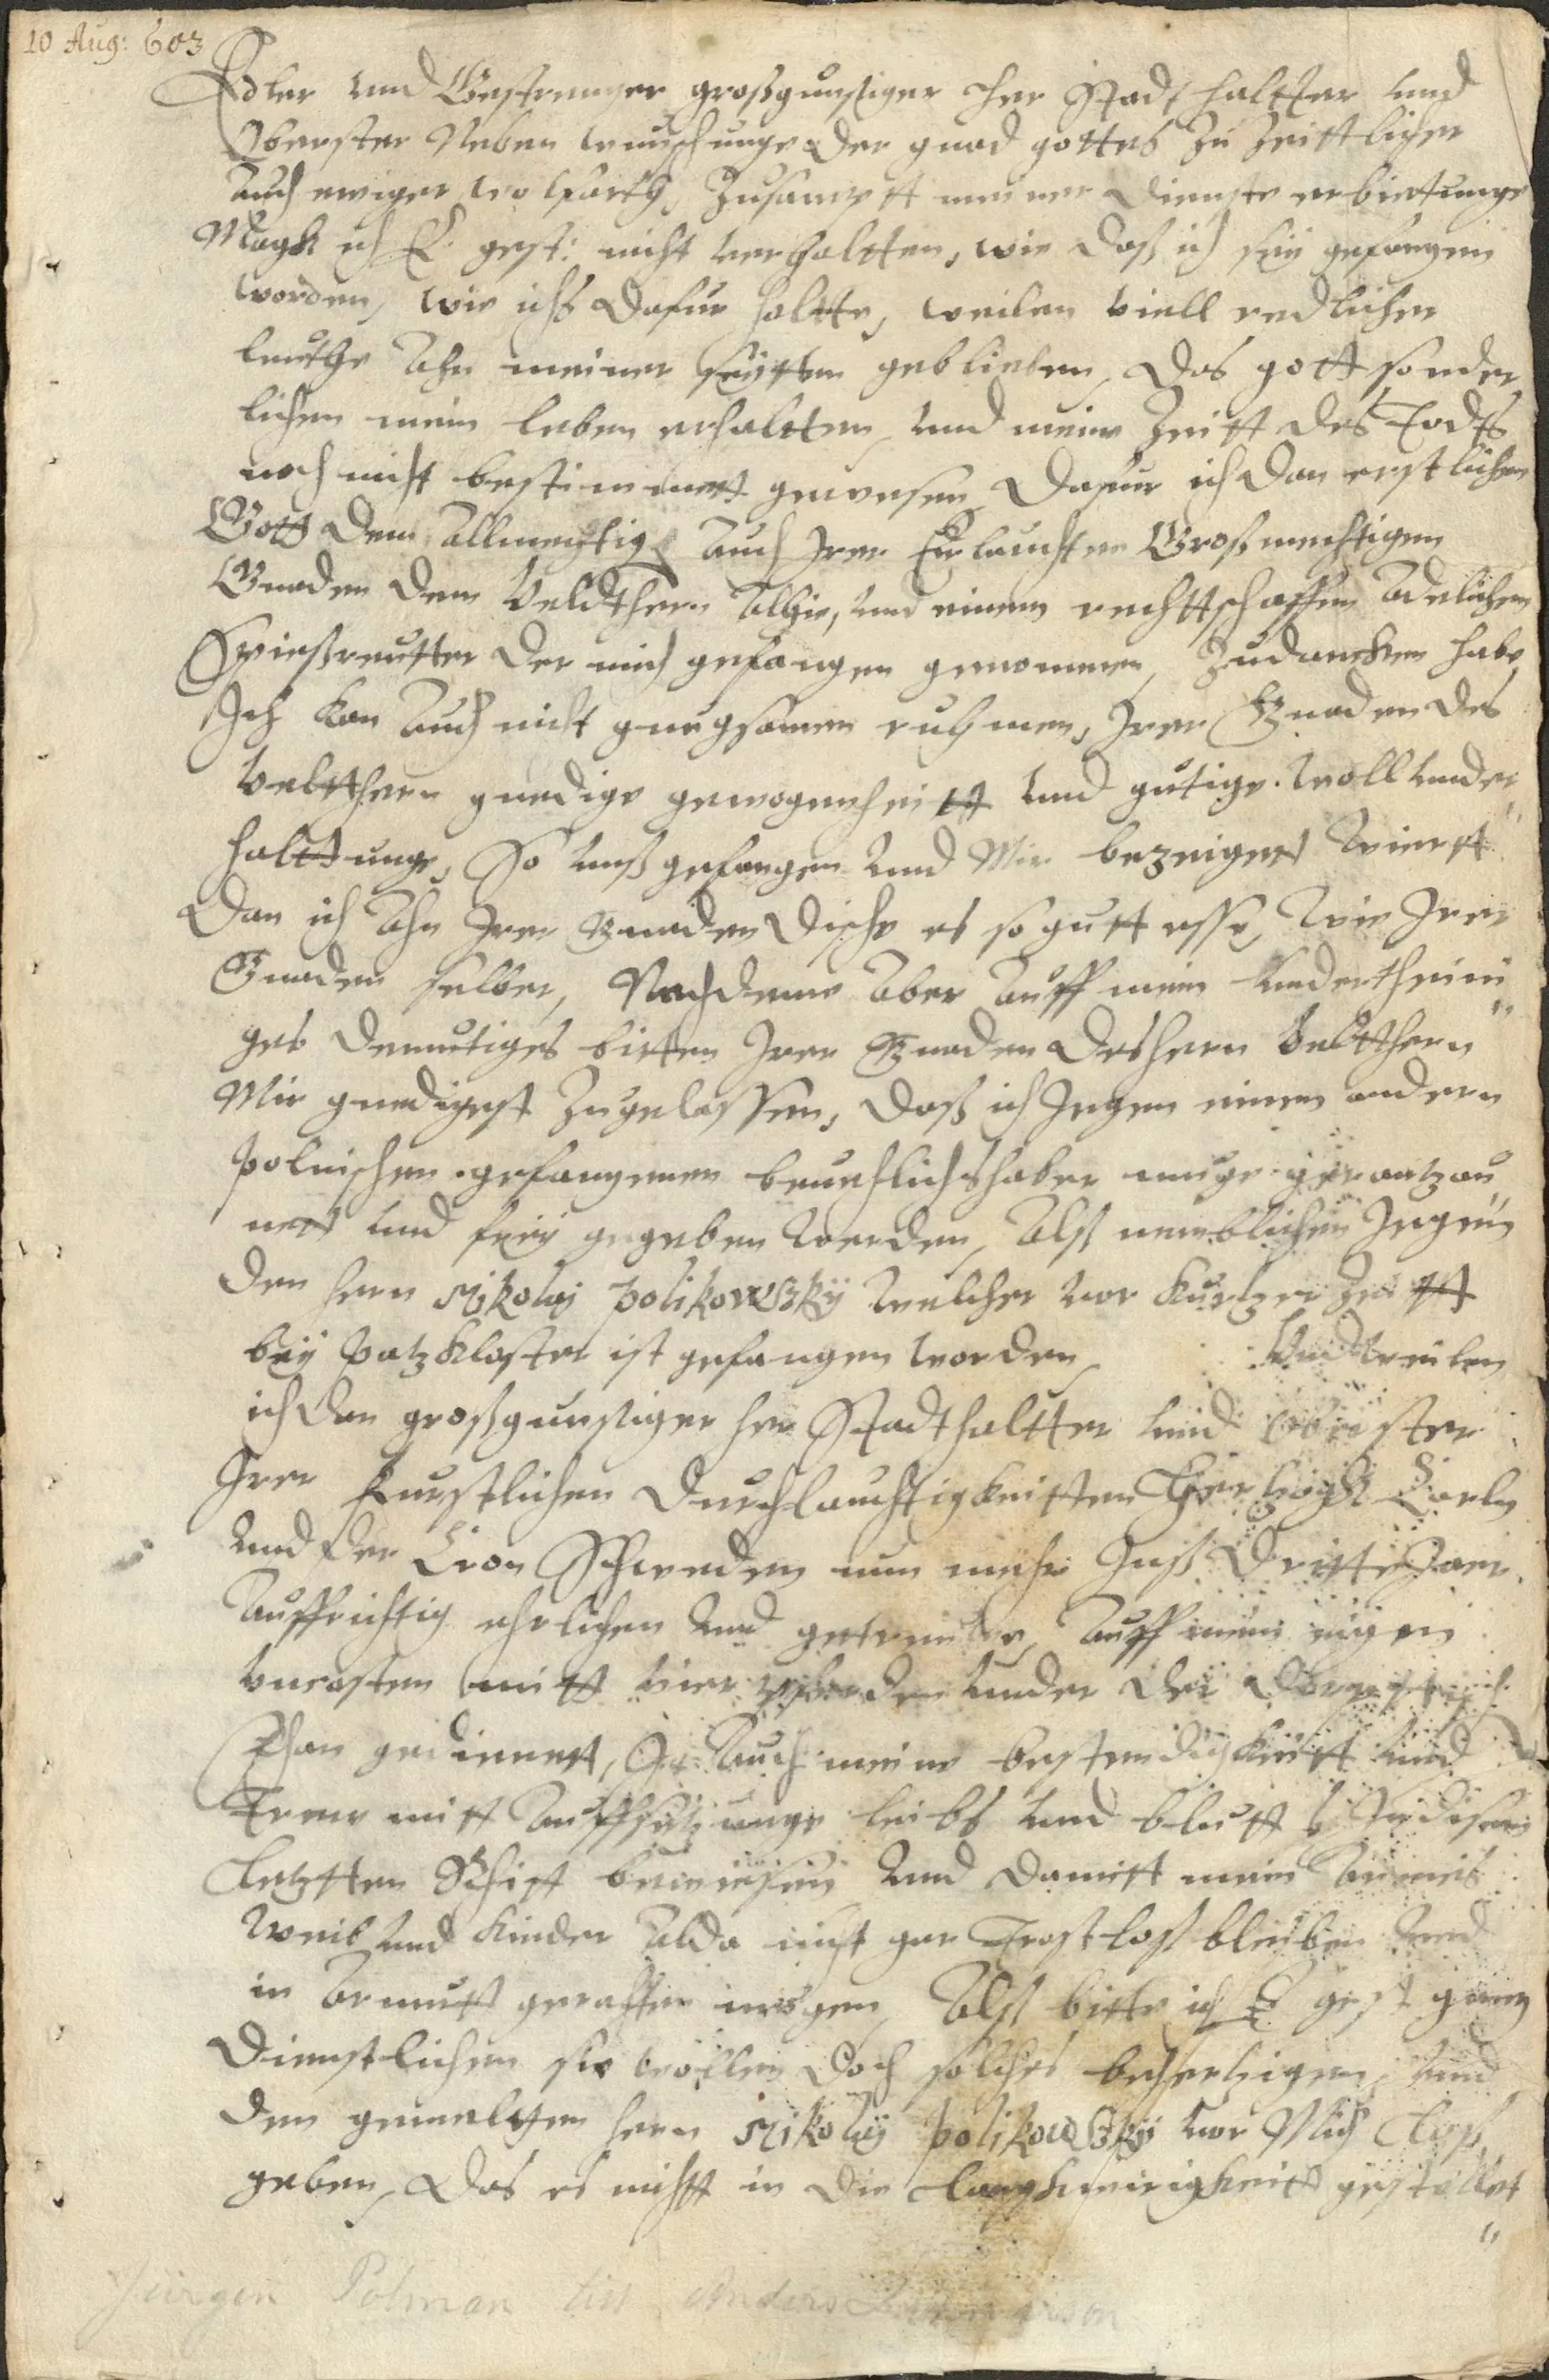 10 Aug: 603
Edler und Gestrenger großgunstiger Her Stadthaltter und
Oberster Neben wunschunge der gnad gottes zu zeittlicher
auch ewiger wolfarth, zusampt meiner dienste erbietunge
Magk ich E. gest: nicht verhaltten, wie daß ich sey gefangen
worden, wie ichs dafur haltte, weilen viell redlicher
leuthe ahn meiner seytten geblieben, das gott sonder
lichen mein leben erhaltten, und meine Zeitt des Todts
noch nicht bestimmet gewesen, dafur ich dan erstlichen
Gott dem allmechtigen auch Irer Erlauchten Großmechtigen
Gnaden dem Veldthern alhie, und einem rechttschaffen adelichen
Spießreutter der mich gefangen genommen, zudancken habe,
Ich kan auch nicht gnugsamen ruhmen, Irer Gnaden des
Veltthern gnedige gewogenheitt und gutige woll under
halttunge, So unß gefangen und Mir bezeiget wirtt
Dan ich ahn Irer Gnaden Dische es so gutt esse, wie Irer
Gnaden selber, Nachdeme aber auff mein underthenni
ges demutiges bitten Irer Gnaden des hern Veltthern
Mir gnedigest zugelassen, daß ich Iegen einen andern
polnischen gefangenen bevehlichshaber muge gerantzau
net und frey gegeben werden, alß nemblichen Iegen
den hern Nikolay Polikowsky welcher vor kurtzer Zeitt
bey Patzkloster ist gefangen worden, Und weilen
ich dan großgunstiger her Stadthaltter und Obrister
Irer Furstlichen Durchlauchtigkeitten Hertzogk Carln
und der Cron Schweden nun mehr Inß dritte Iaer
auffrichtig ehrlichen und getreulich, auff mein eigen
uncosten mitt vier pferden under der
Fhan gedienet, auch meine bestendigkeitt und
Trewe mitt auffsetzunge leibs und blutts In disem
letztten bewiesen und damitt mein armes
weib und kinder alda nicht gar Trostloß bleiben und
in armutt geratten mogen, Alß bitte ich E gest gantz
dienstlichen sie wollen doch solches behertzigen, und
den gemeltten hern Nikolay Polikowsky vor Mich loß
geben, das es nicht in die langkwirigkeitt gestellet
Jürgen Polman till Anders